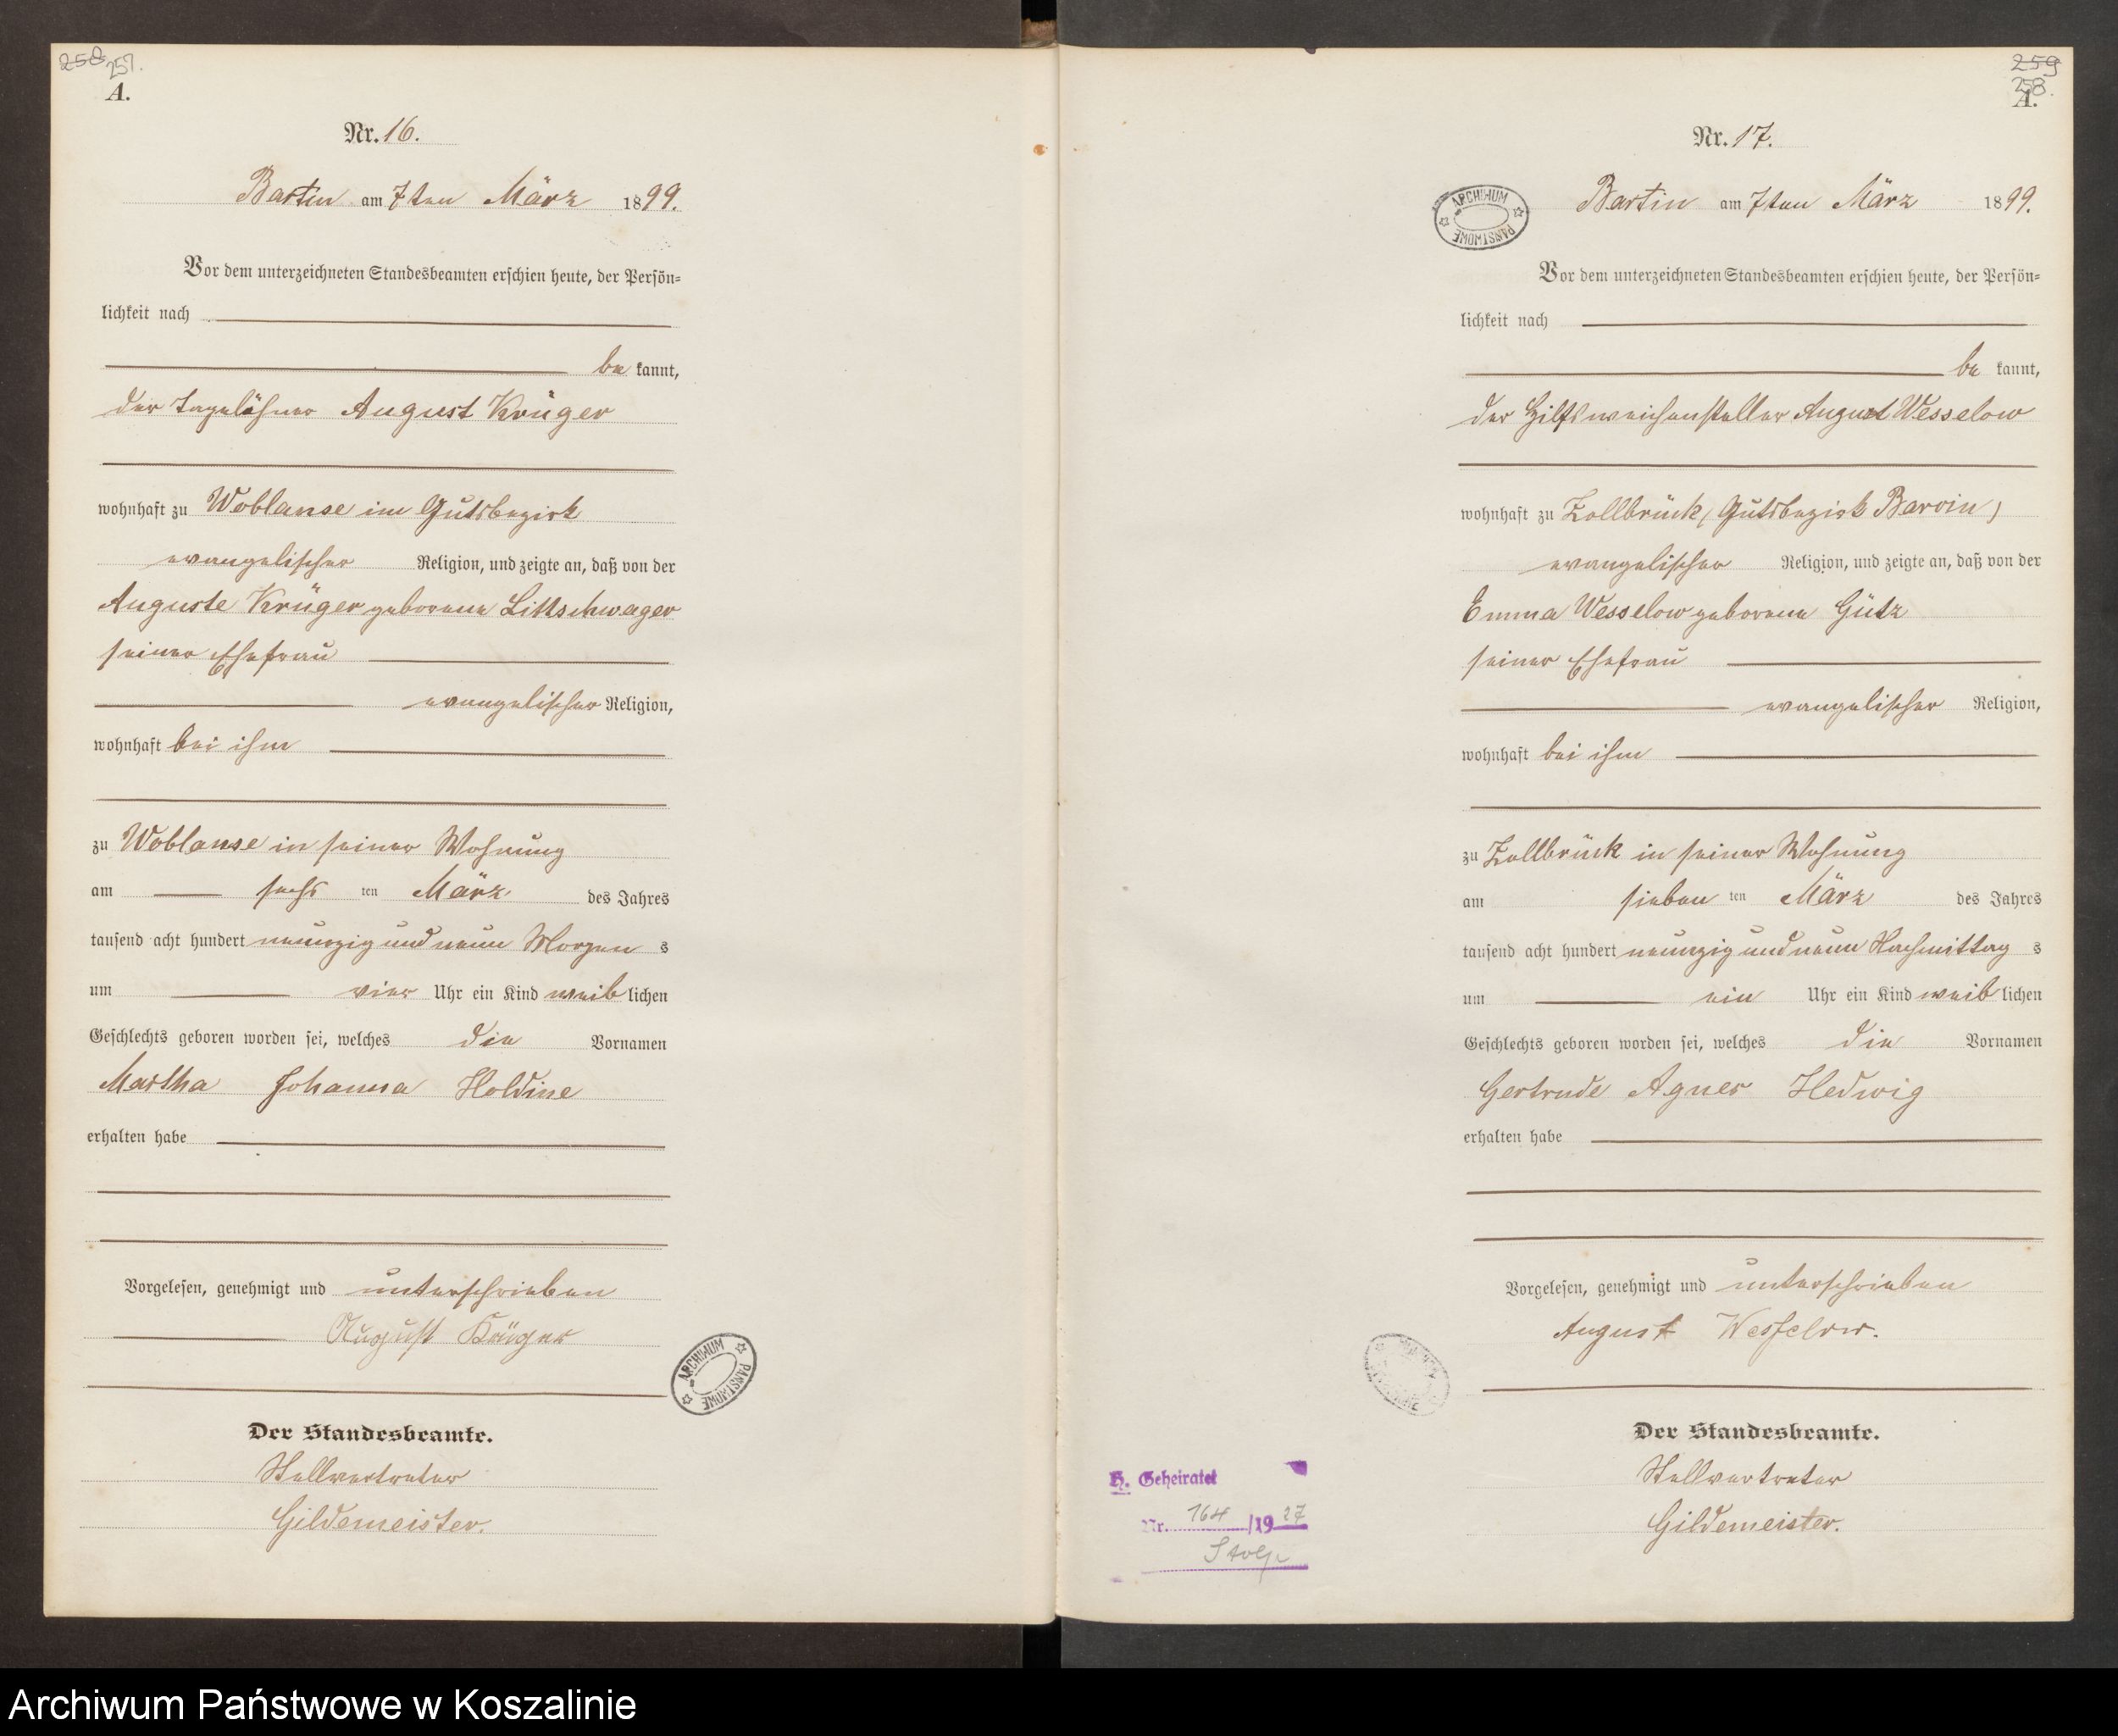 258 257.
A.
Nr. 16.
Bartin am 7ten März 1899.
Vor dem unterzeichneten Standesbeamten erschien heute, der Persön-
lichkeit nach
be kannt,
der Tagelöhner August Krüger
wohnhaft zu Woblanse im Gutsbezirk
evangelischer Religion, und zeigte an, daß von der
Auguste Krüger geborene Littschwager
seiner Ehefrau
evangelischer Religion,
wohnhaft bei ihm
zu Woblanse in seiner Wohnung
am sechs ten März des Jahres
tausend acht hundert neunzig und neun Morgen s
um vier Uhr ein Kind weib lichen
Geschlechts geboren worden sei, welches die Vornamen
Martha Johanna Holdine
erhalten habe
Vorgelesen, genehmigt und unterschrieben
August Krüger
ARCHIWUM PAŃSTWOWE
Der Standesbeamte.
Stellvertreter
Gildemeister.
259
258.
A.
Nr. 17.
ARCHIWUM PAŃSTWOWE
Bartin am 7ten März 1899.
Vor dem unterzeichneten Standesbeamten erschien heute, der Persön-
lichkeit nach
be kannt,
der Hilfsweichensteller August Wesselow
wohnhaft zu Zollbrück (Gutsbezirk Barvin)
evangelischer Religion, und zeigte an, daß von der
Emma Wesselow geborene Gütz
seiner Ehefrau
evangelischer Religion,
wohnhaft bei ihm
zu Zollbrück in seiner Wohnung
am sieben ten März des Jahres
tausend acht hundert neunzig und neun Nachmittag s
um ein Uhr ein Kind weib lichen
Geschlechts geboren worden sei, welches die Vornamen
Gertrude Agnes Hedwig
erhalten habe
Vorgelesen, genehmigt und unterschrieben
August Wesselow.
Der Standesbeamte.
Stellvertreter
Gildemeister.
H. Geheiratet
Nr. 164 /1927
Stolp
Archiwum Państwowe w Koszalinie